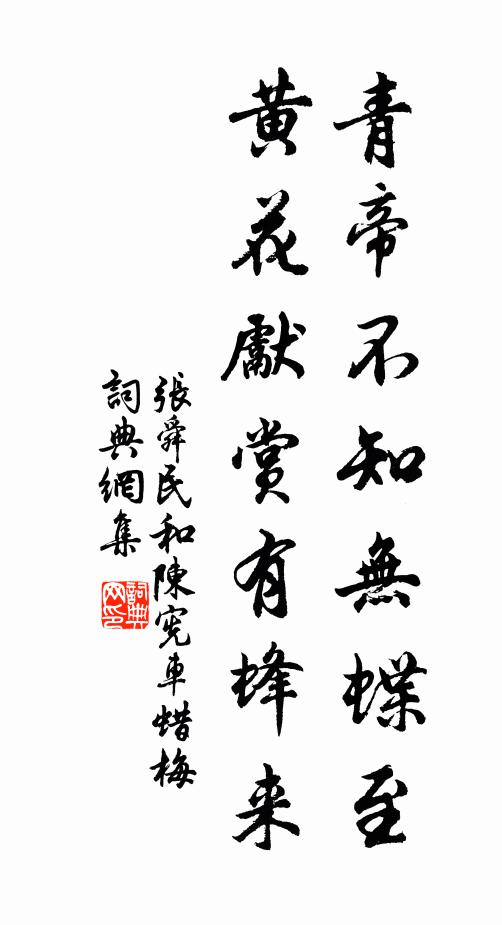 青帝不知無蝶至
黄花獻賞有蜂来
張舜民和陳宪車蜡梅
詞典網集
詞典网印